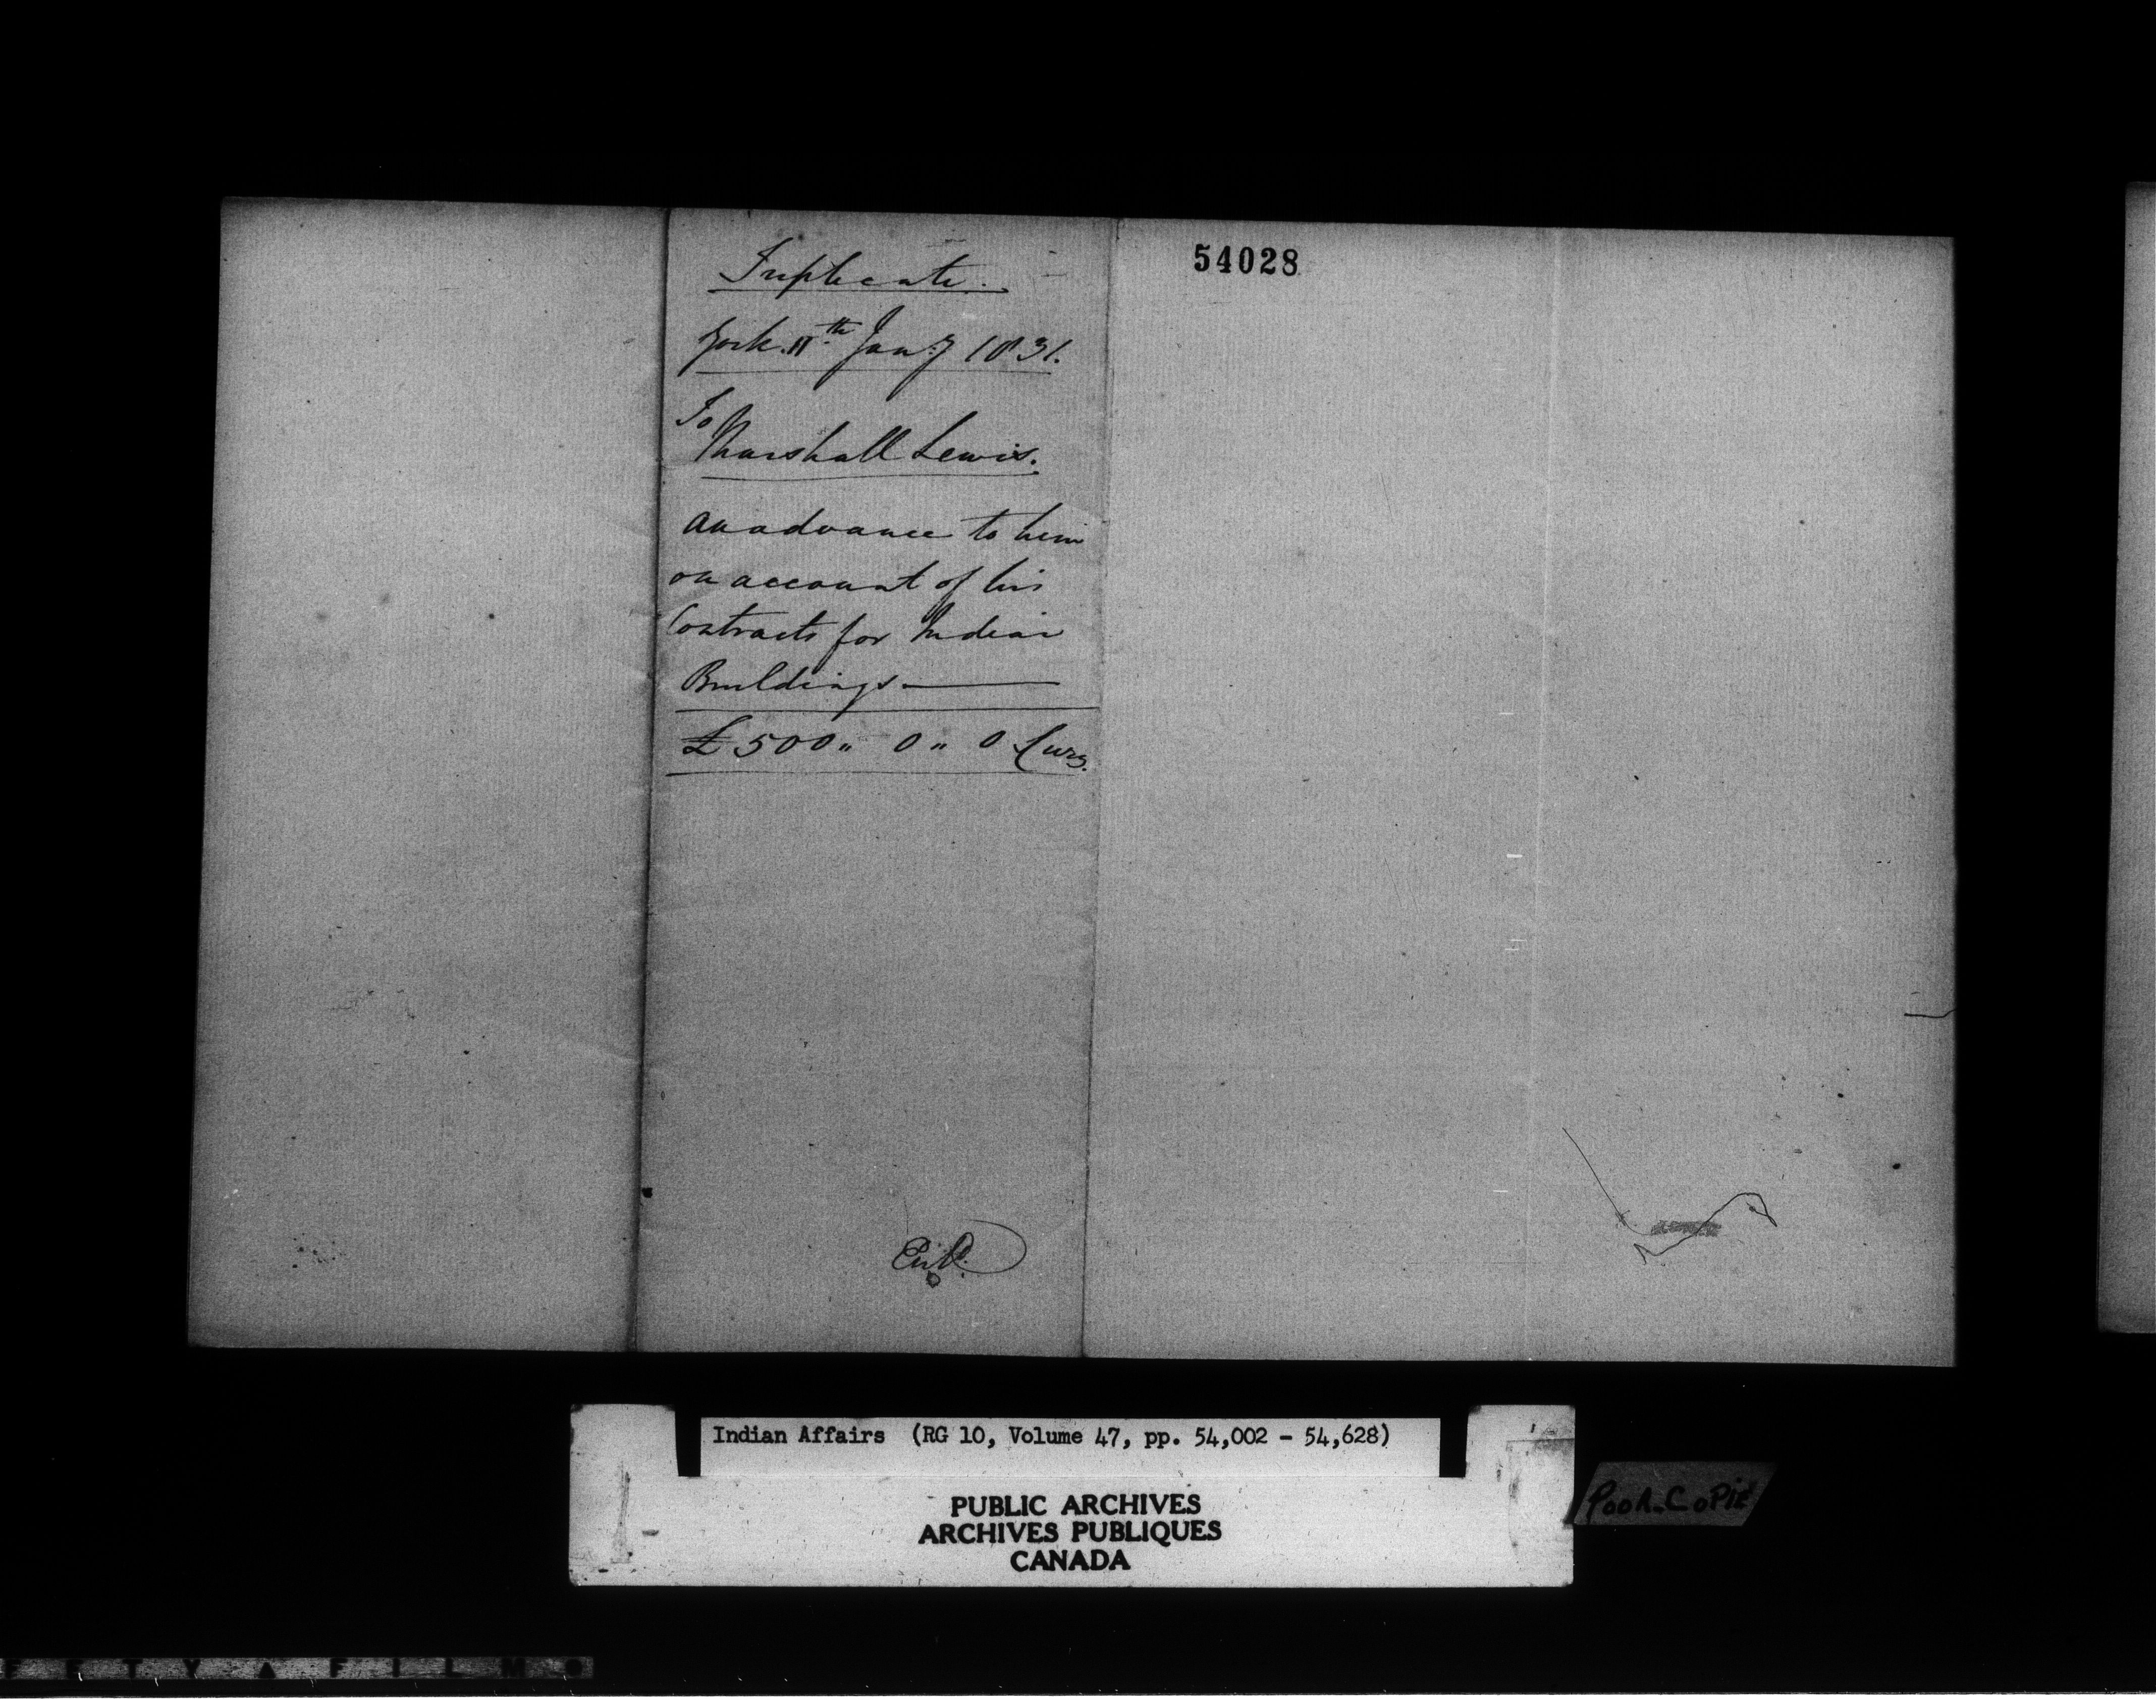 Triplicate.
York. 11th Jany 1831.
To
Marshall Lewis.
An advance to him
on account of his
Contracts for Indian
Buildings
£ 500 " 0 " 0 Curcy.
54028
Indian Affairs (RG 10, Volume 47, pp. 54,002 - 54,628)
PUBLIC ARCHIVES
ARCHIVES PUBLIQUES
CANADA
POOR COPIE
SAFETY FILM